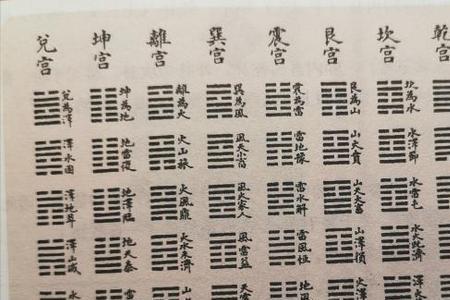 乾宮
坎宮
坎為水
水澤節
水雷屯
水火既濟
艮宮
艮為山
山火賁
山天大畜
山澤損
震宮
震為雷
雷地豫
雷水解
雷風恒
巽宮
巽為風
風天小畜
風火家人
風雷益
離宮
離為火
火山旅
火風鼎
火水未濟
坤宮
坤為地
地雷復
地澤臨
地天泰
兌宮
兌為澤
澤水困
澤地萃
澤山咸